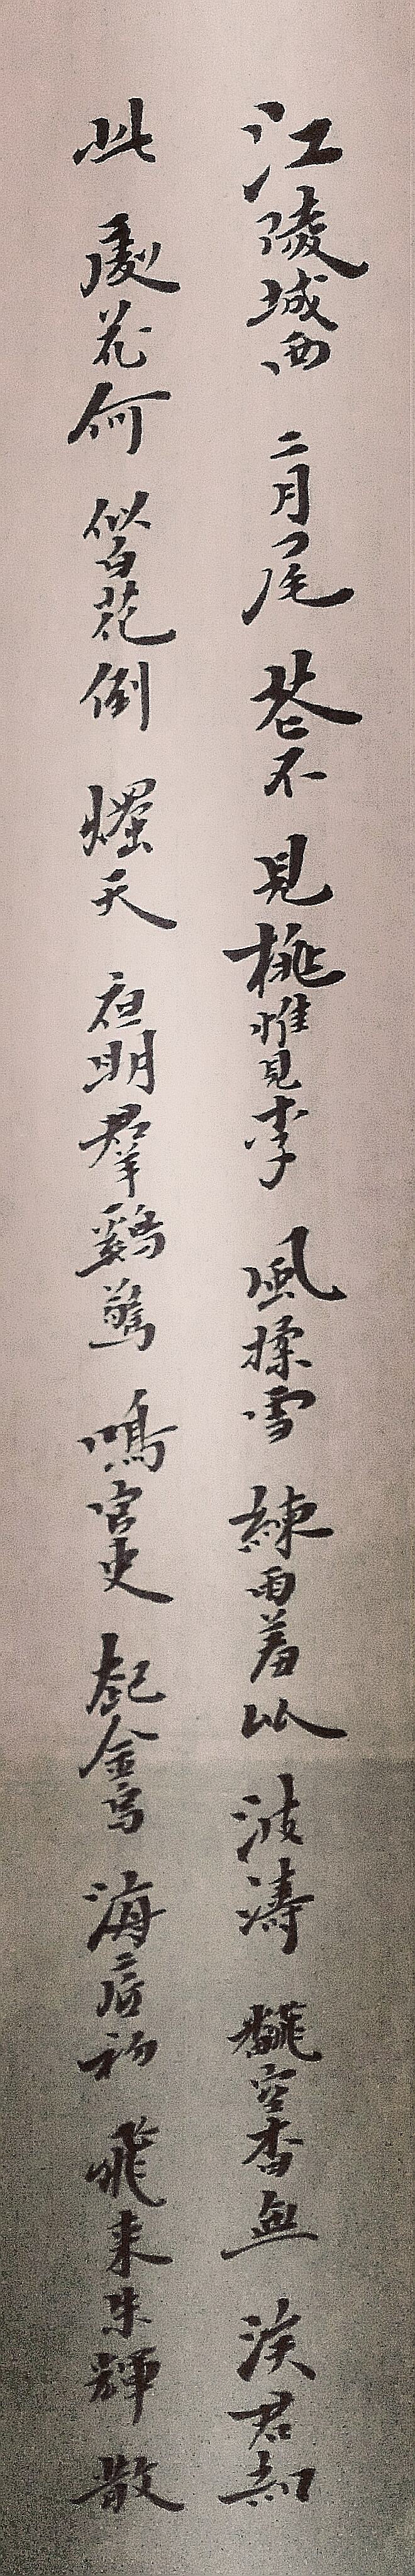 江陵城西二月尾花不見桃惟見李風揉雪練雨羞比波濤飜空杳無涘君知
此處花何似白花倒爥天夜明羣鷄驚鳴官吏起金烏海底初飛来朱輝散